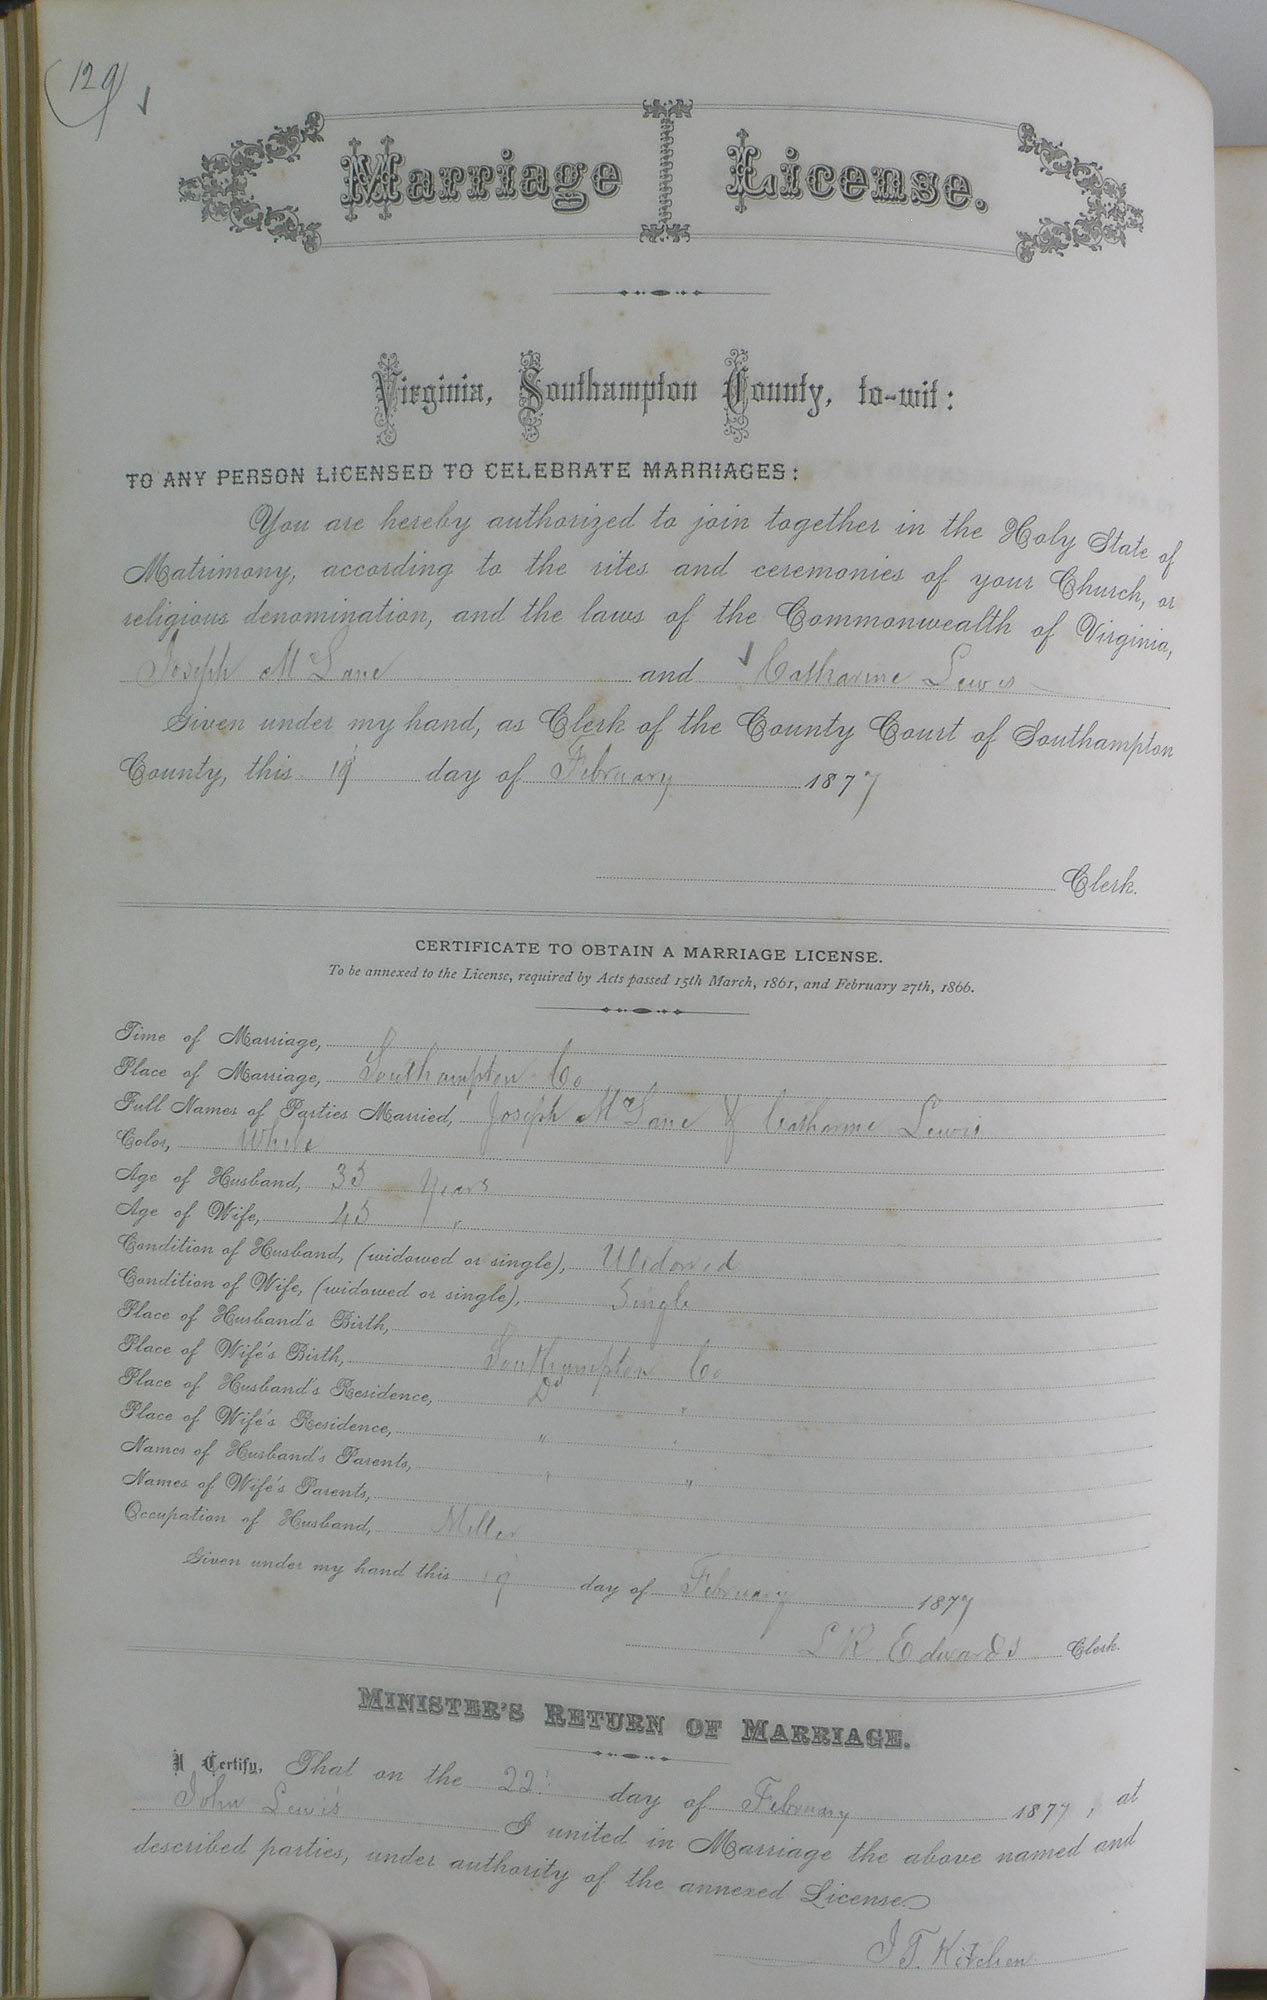 (129)
Marriage License.
Virginia, Southampton County, to-wit:
TO ANY PERSON LICENSED TO CELEBRATE MARRIAGES:
You are hereby authorized to join together in the Holy State of
Matrimony, according to the rites and ceremonies of your Church, or
religious denomination, and the laws of the Commonwealth of Virginia,
Joseph McLane and Catharine Lewis
Given under my hand, as Clerk of the County Court of Southampton
County, this 19 day of February 1877
Clerk.
CERTIFICATE TO OBTAIN A MARRIAGE LICENSE.
To be annexed to the License, required by Acts passed 15th March, 1861, and February 27th, 1866.
Time of Marriage,
Place of Marriage, Southampton Co
Full Names of Parties Married, Joseph McLane & Catharine Lewis
Color, White
Age of Husband, 35 Years
Age of Wife, 45 "
Condition of Husband, (widowed or single), Widowed
Condition of Wife, (widowed or single), Single
Place of Husband's Birth,
Place of Wife's Birth, Southampton Co
Place of Husband's Residence, Do "
Place of Wife's Residence, " "
Names of Husband's Parents, " "
Names of Wife's Parents,
Occupation of Husband, Miller
Given under my hand this 19 day of February 1877
L R Edwards Clerk.
MINISTER'S RETURN OF MARRIAGE.
I Certify, That on the 22 day of February 1877, at
John Lewis' I united in Marriage the above named and
described parties, under authority of the annexed License
J. T. Kitchen